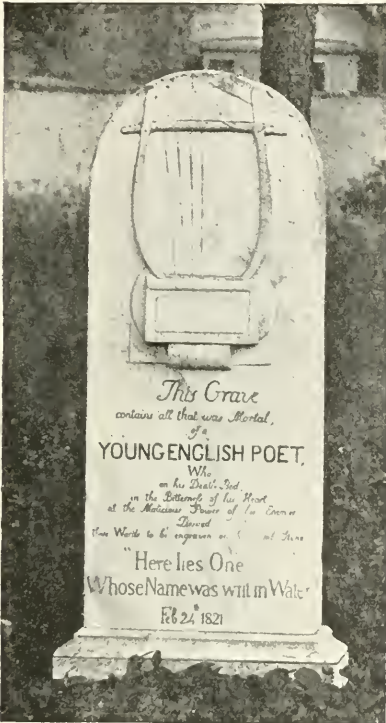 This Grave
contains all that was Mortal,
of a
YOUNG ENGLISH POET,
Who
on his Death Bed,
in the Bitterness of his Heart
at the Malicious Power of his Enemies
Desired
these Words to be engraven on Stone
"Here lies One
Whose Name was writ in Water
Feb 24 1821